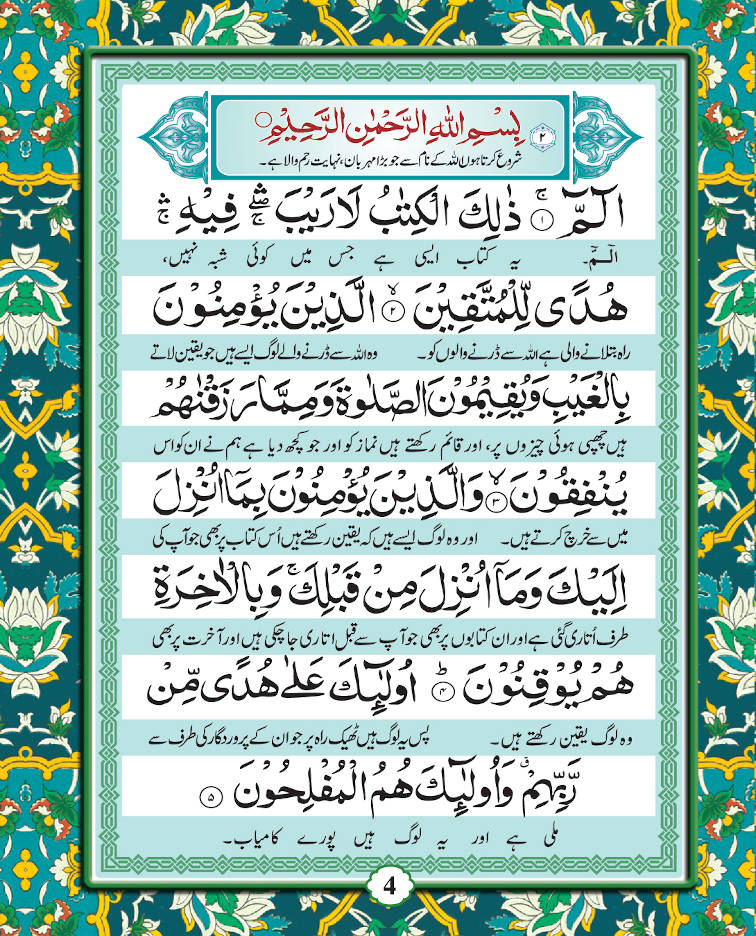 ۲
بِسْمِ اللّٰهِ الرَّحْمٰنِ الرَّحِيْمِ
شروع کرتا ہوں اللہ کے نام سے جو بڑا مہربان، نہایت رحم والا ہے۔
الٓـمّٓ ۚ ۱ ذٰلِكَ الْكِتٰبُ لَا رَيْبَ ۛۖ فِيْهِ ۛۚ
الٓـمّٓ۔ یہ کتاب ایسی ہے جس میں کوئی شبہ نہیں،
هُدًى لِّلْمُتَّقِيْنَ ۙ ۲ الَّذِيْنَ يُؤْمِنُوْنَ
راہ بتلانے والی ہے اللہ سے ڈرنے والوں کو۔ وہ اللہ سے ڈرنے والے لوگ ایسے ہیں جو یقین لاتے
بِالْغَيْبِ وَيُقِيْمُوْنَ الصَّلٰوةَ وَمِمَّا رَزَقْنٰهُمْ
ہیں چھپی ہوئی چیزوں پر، اور قائم رکھتے ہیں نماز کو اور جو کچھ دیا ہے ہم نے ان کو اس
يُنْفِقُوْنَ ۙ ۳ وَالَّذِيْنَ يُؤْمِنُوْنَ بِمَاۤ اُنْزِلَ
میں سے خرچ کرتے ہیں۔ اور وہ لوگ ایسے ہیں کہ یقین رکھتے ہیں اُس کتاب پر بھی جو آپ کی
اِلَيْكَ وَمَاۤ اُنْزِلَ مِنْ قَبْلِكَ ۚ وَبِالْاٰخِرَةِ
طرف اُتاری گئی ہے اور ان کتابوں پر بھی جو آپ سے قبل اتاری جا چکی ہیں اور آخرت پر بھی
هُمْ يُوْقِنُوْنَ ؕ ۴ اُولٰٓئِكَ عَلٰى هُدًى مِّنْ
وہ لوگ یقین رکھتے ہیں۔ پس یہ لوگ ہیں ٹھیک راہ پر جو ان کے پروردگار کی طرف سے
رَّبِّهِمْ ۗ وَاُولٰٓئِكَ هُمُ الْمُفْلِحُوْنَ ۵
ملی ہے اور یہ لوگ ہیں پورے کامیاب۔
4